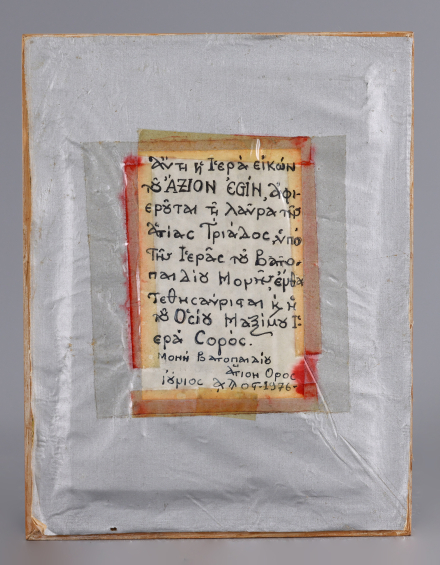 Αὕτη ἡ Ἱερὰ εἰκὼν
τȣ͂ ἌΞΙΟΝ ἘϚΙΝ, ἀφι-
ερȣ͂ται τῇ λαύρᾳ τῆς
Ἁγίας Τριάδος, ὑπὸ
τῆς Ἱερᾶς τȣ͂ Βατο-
παιδίου Μονῆς, ἔνθα
τεθησαύρισται κ ἡ
τȣ͂ Ὁσίου Μαξίμου Ἱ-
ερὰ Σορός.
Μονὴ Βατοπαιδίου
Ἅγιον Ὄρος
1976